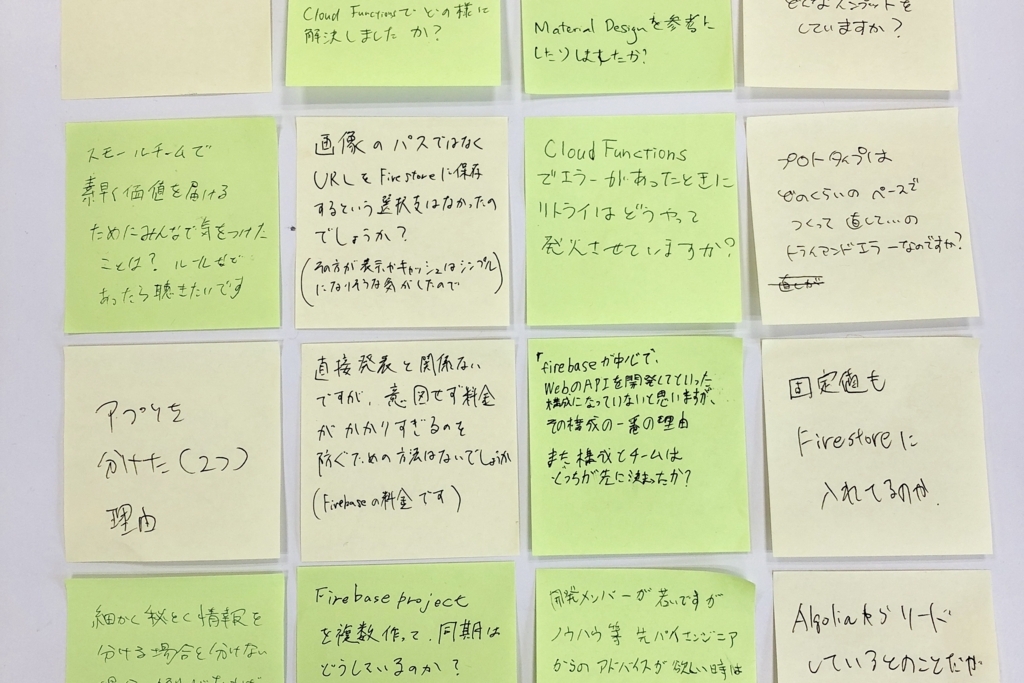 Cloud Functionsでどの様に
解決しましたか?
Material Designを参考に
したりはしたか?
していますか?
スモールチームで
素早く価値を届ける
ためにみんなで気をつけた
ことは? ルールなど
あったら聴きたいです
画像のパスではなく
URLをFirestoreに保存
するという選択支はなかったの
でしょうか?
(その方が表示やキャッシュはシンプル
になりそうな気がしたので)
Cloud Functions
でエラーがあったときに
リトライはどうやって
発火させていますか?
プロトタイプは
どのくらいのペースで
つくって直していの
トライアンドエラーなのですか?
アプリを
分けた(2つ)
理由
直接発表と関係ない
ですが、意図せず料金
がかかりすぎるのを
防ぐための方法はないでしょうか
(Firebaseの料金です)
firebaseが中心で、
WebのAPIを開発してといった
構成になっていないと思いますが、
その構成の一番の理由
また構成とチームは
どっちが先に決まったか?
固定値も
Firestoreに
入れてるのか
細かく秘とく情報を
分ける場合と分けない
Firebase project
を複数作って、同期は
どうしているのか?
開発メンバーが若いですが
ノウハウ等 先パイエンジニア
からのアドバイスが欲しい時は
Algoliaからリード
しているとのことだが